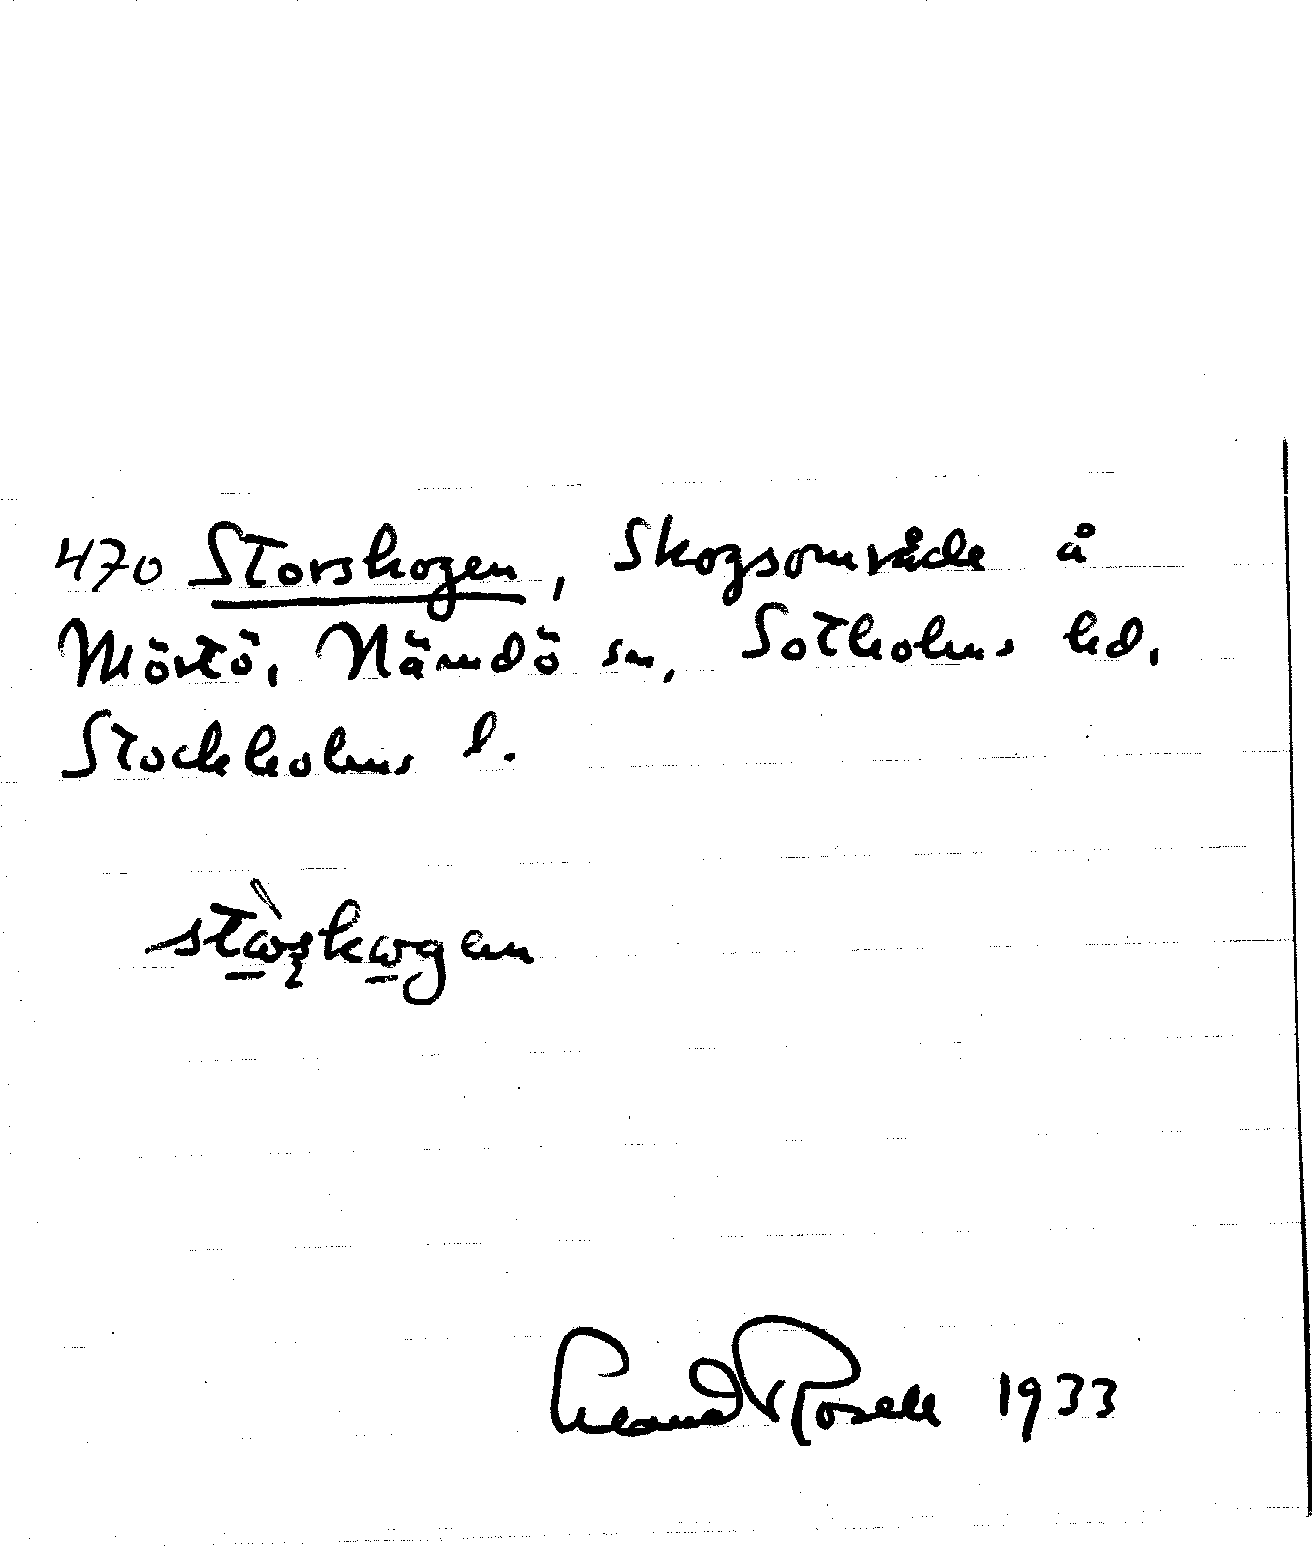 470 Storskogen, Skogsområde å
Mörtö, Nämdö sn, Sotholms hd,
Stockholms l.
stὼʂkωgen
Rosell 1933